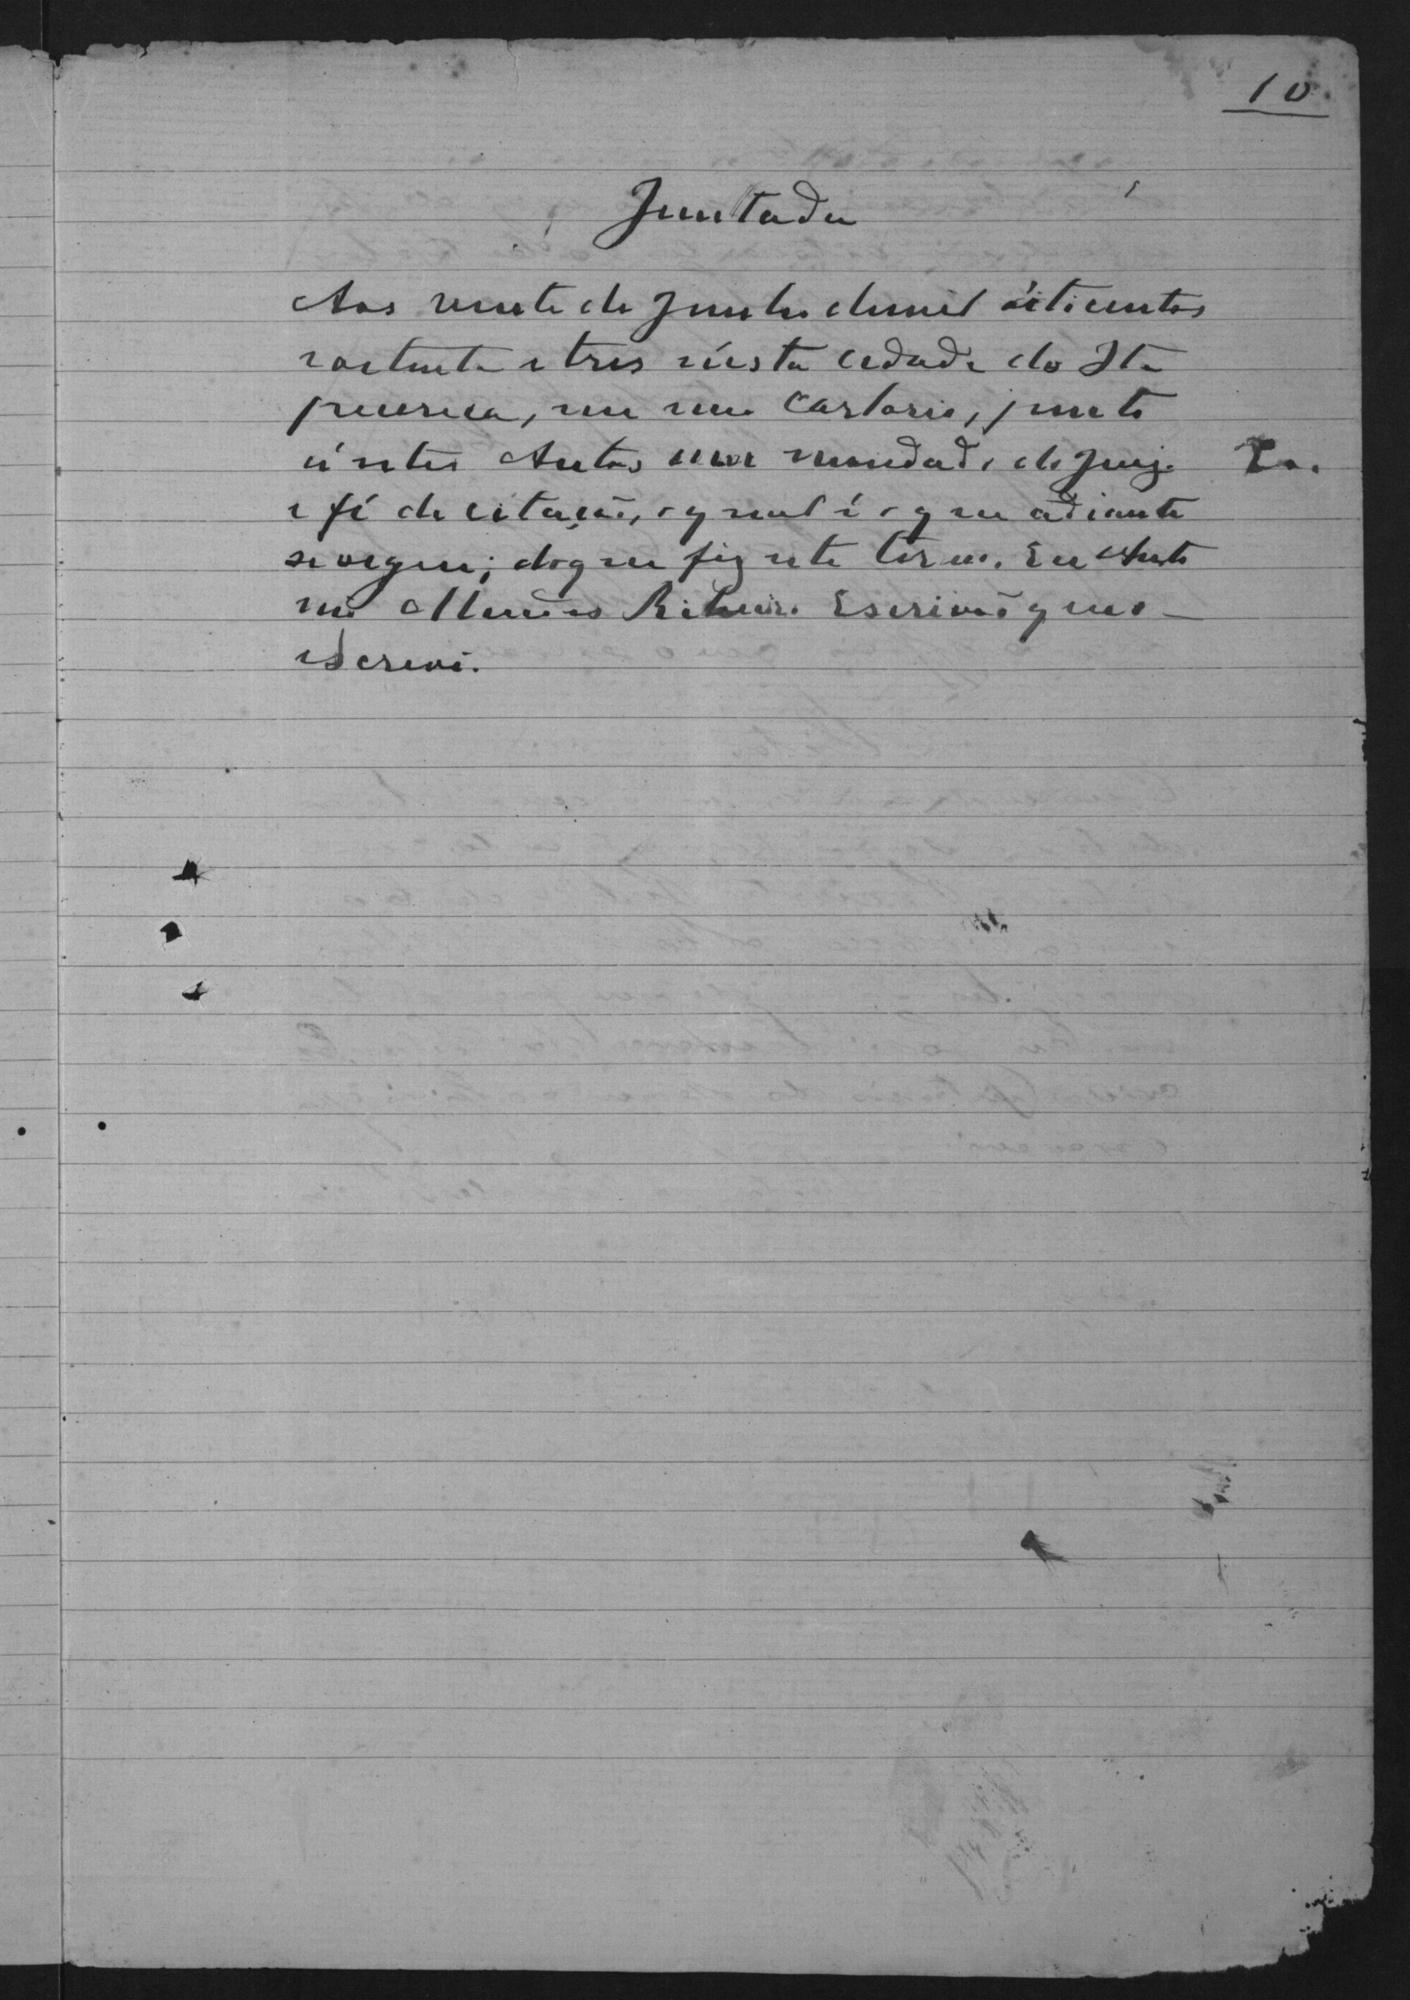 10.
Juntada
Aos vinte de Junho de mil oitocentos
e oitenta e tres n'esta cidade do Ita
pecerica, em meu Cartorio, junto
á estes Autos um mandado do Juiz
e fé de citação, o qual é o que adiante
se vê; do que fiz este termo. Eu
Ribeiro Escrivão que o
escrevi.